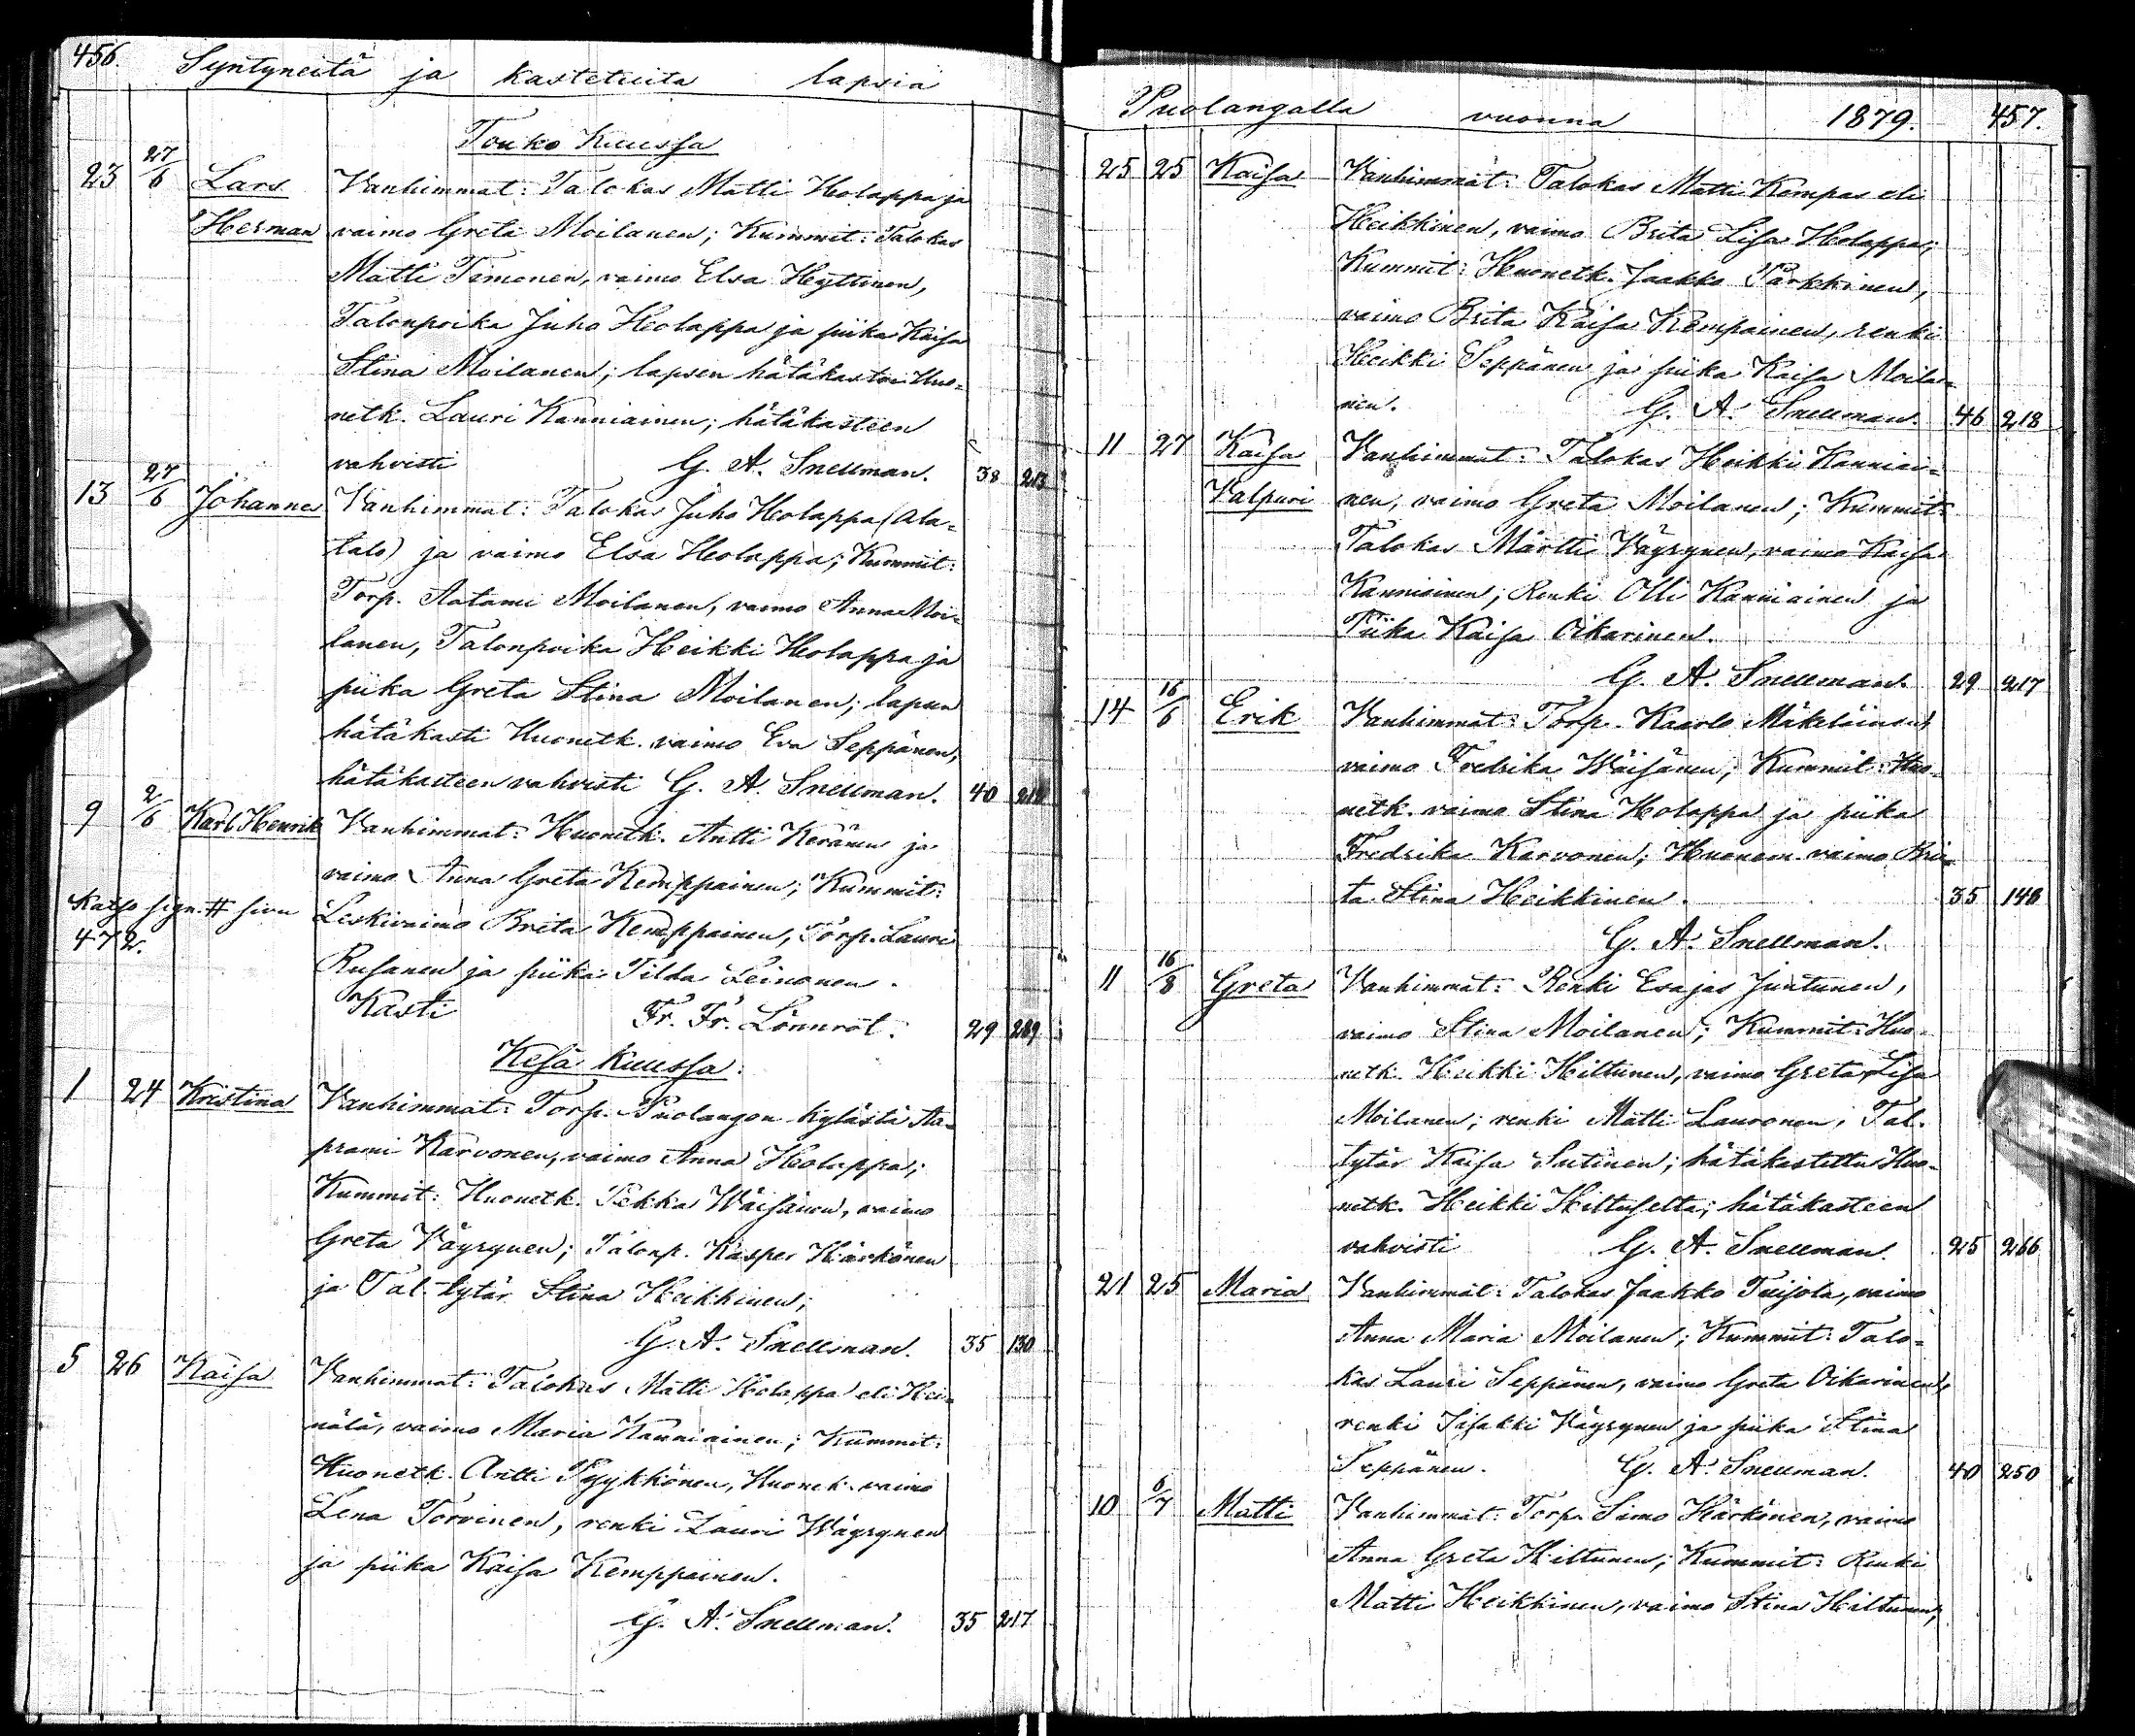 456. Syntyneitä ja kastetuita lapsia
Touko Kuussa
23 27/6 Lars Vanhimmat: Talokas Matti Holappa ja
Herman vaimo Greta Moilanen; Kummit: Talokas
Matti Timonen, vaimo Elsa Hyttinen,
Talonpoika Juho Holappa ja piika Kaisa
Stina Moilanen; lapsen hätäkastoi Huo-
netk. Lauri Kanniainen; hätäkasteen
vahvisti G. A. Snellman. 38 213
13 27/6 Johannes Vanhimmat: Talokas Juho Holappa (Ala-
talo) ja vaimo Elsa Holappa; Kummit:
Torp. Aatami Moilanen, vaimo Anna Moi-
lanen, Talonpoika Heikki Holappa ja
piika Greta Stina Moilanen; lapsen
hätäkasti Huonetk. vaimo Eva Seppänen,
hätäkasteen vahvisti G. A. Snellman. 40
9 2/6 Karl Henrik Vanhimmat: Huonetk. Antti Keränen ja
vaimo Anna Greta Kemppainen; Kummit:
Katso sign. # sivu Leskivaimo Brita Kemppainen, Torp. Lauri
472. Rusanen ja piika Tilda Leinonen.
Kasti Fr. Fr. Lönnrot. 29 289
Kesä Kuussa.
1 24 Kristina Vanhimmat: Torp. Puolangon kylästä Aa-
prami Karvonen, vaimo Anna Holappa;
Kummit: Huonetk. Pekka Wäisänen, vaimo
Greta Väyrynen; Talonp. Kasper Härkönen
ja Tal. tytär Stina Heikkinen;
G. A. Snellman. 35 130
5 26 Kaisa Vanhimmat: Talokas Matti Holappa eli Hei-
nälä, vaimo Maria Kanniainen; Kummit:
Huonetk. Antti Pyykkönen, Huonek. vaimo
Lena Torvinen, renki Lauri Wäyrynen
ja piika Kaisa Kemppainen.
G. A. Snellman. 35 217
Puolangalla vuonna 1879. 457.
25 25 Kaisa Vanhimmat: Talokas Matti Kempas eli
Heikkinen, vaimo Brita Lisa Holappa;
Kummit: Huonetk. Jaakko Pärkkinen,
vaimo Brita Kaisa Kempainen, renki
Heikki Seppänen ja piika Kaisa Moila-
nen. G. A. Snellman. 46 218
11 27 Kaisa Vanhimmat: Talokas Heikki Kanniai-
Valpuri nen, vaimo Greta Moilanen; Kummit:
Talokas Martti Väyrynen, vaimo Kaisa
Kanniainen; Renki Olli Kanniainen ja
Piika Kaisa Oikarinen.
G. A. Snellman. 29 217
14 16/6 Erik Vanhimmat: Torp. Kaarlo Mäkeläinen,
vaimo Fredrika Wäisänen; Kummit: Huo-
netk. vaimo Stina Holappa ja piika
Fredrika Karvonen; Huonem. vaimo Bri-
ta Stina Heikkinen. 35 148
G. A. Snellman.
11 16/8 Greta Vanhimmat: Renki Esajas Juntunen,
vaimo Stina Moilanen; Kummit: Huo-
netk. Heikki Hiltunen, vaimo Greta Lisa
Moilanen; renki Matti Lauronen; Tal.
tytär Kaisa Sutinen; hätäkastettu Huo-
netk. Heikki Hiltuselta; hätäkasteen
vahvisti G. A. Snellman. 25 266
21 25 Maria Vanhimmat: Talokas Jaakko Tuijola, vaimo
Anna Maria Moilanen; Kummit: Talo-
kas Lauri Seppänen, vaimo Greta Oikarinen,
renki Iisakki Väyrynen ja piika Stina
Seppänen. G. A. Snellman. 40 250
10 6/7 Matti Vanhimmat: Torp. Simo Härkönen, vaimo
Anna Greta Hiltunen; Kummit: Renki
Matti Heikkinen, vaimo Stina Hiltunen,